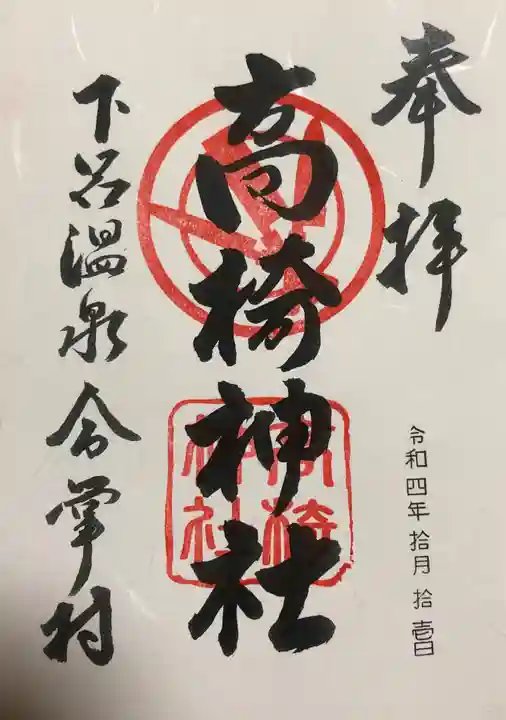 奉拝
高椅神社
高椅
神社
令和四年拾月拾壱日
下呂温泉合掌村